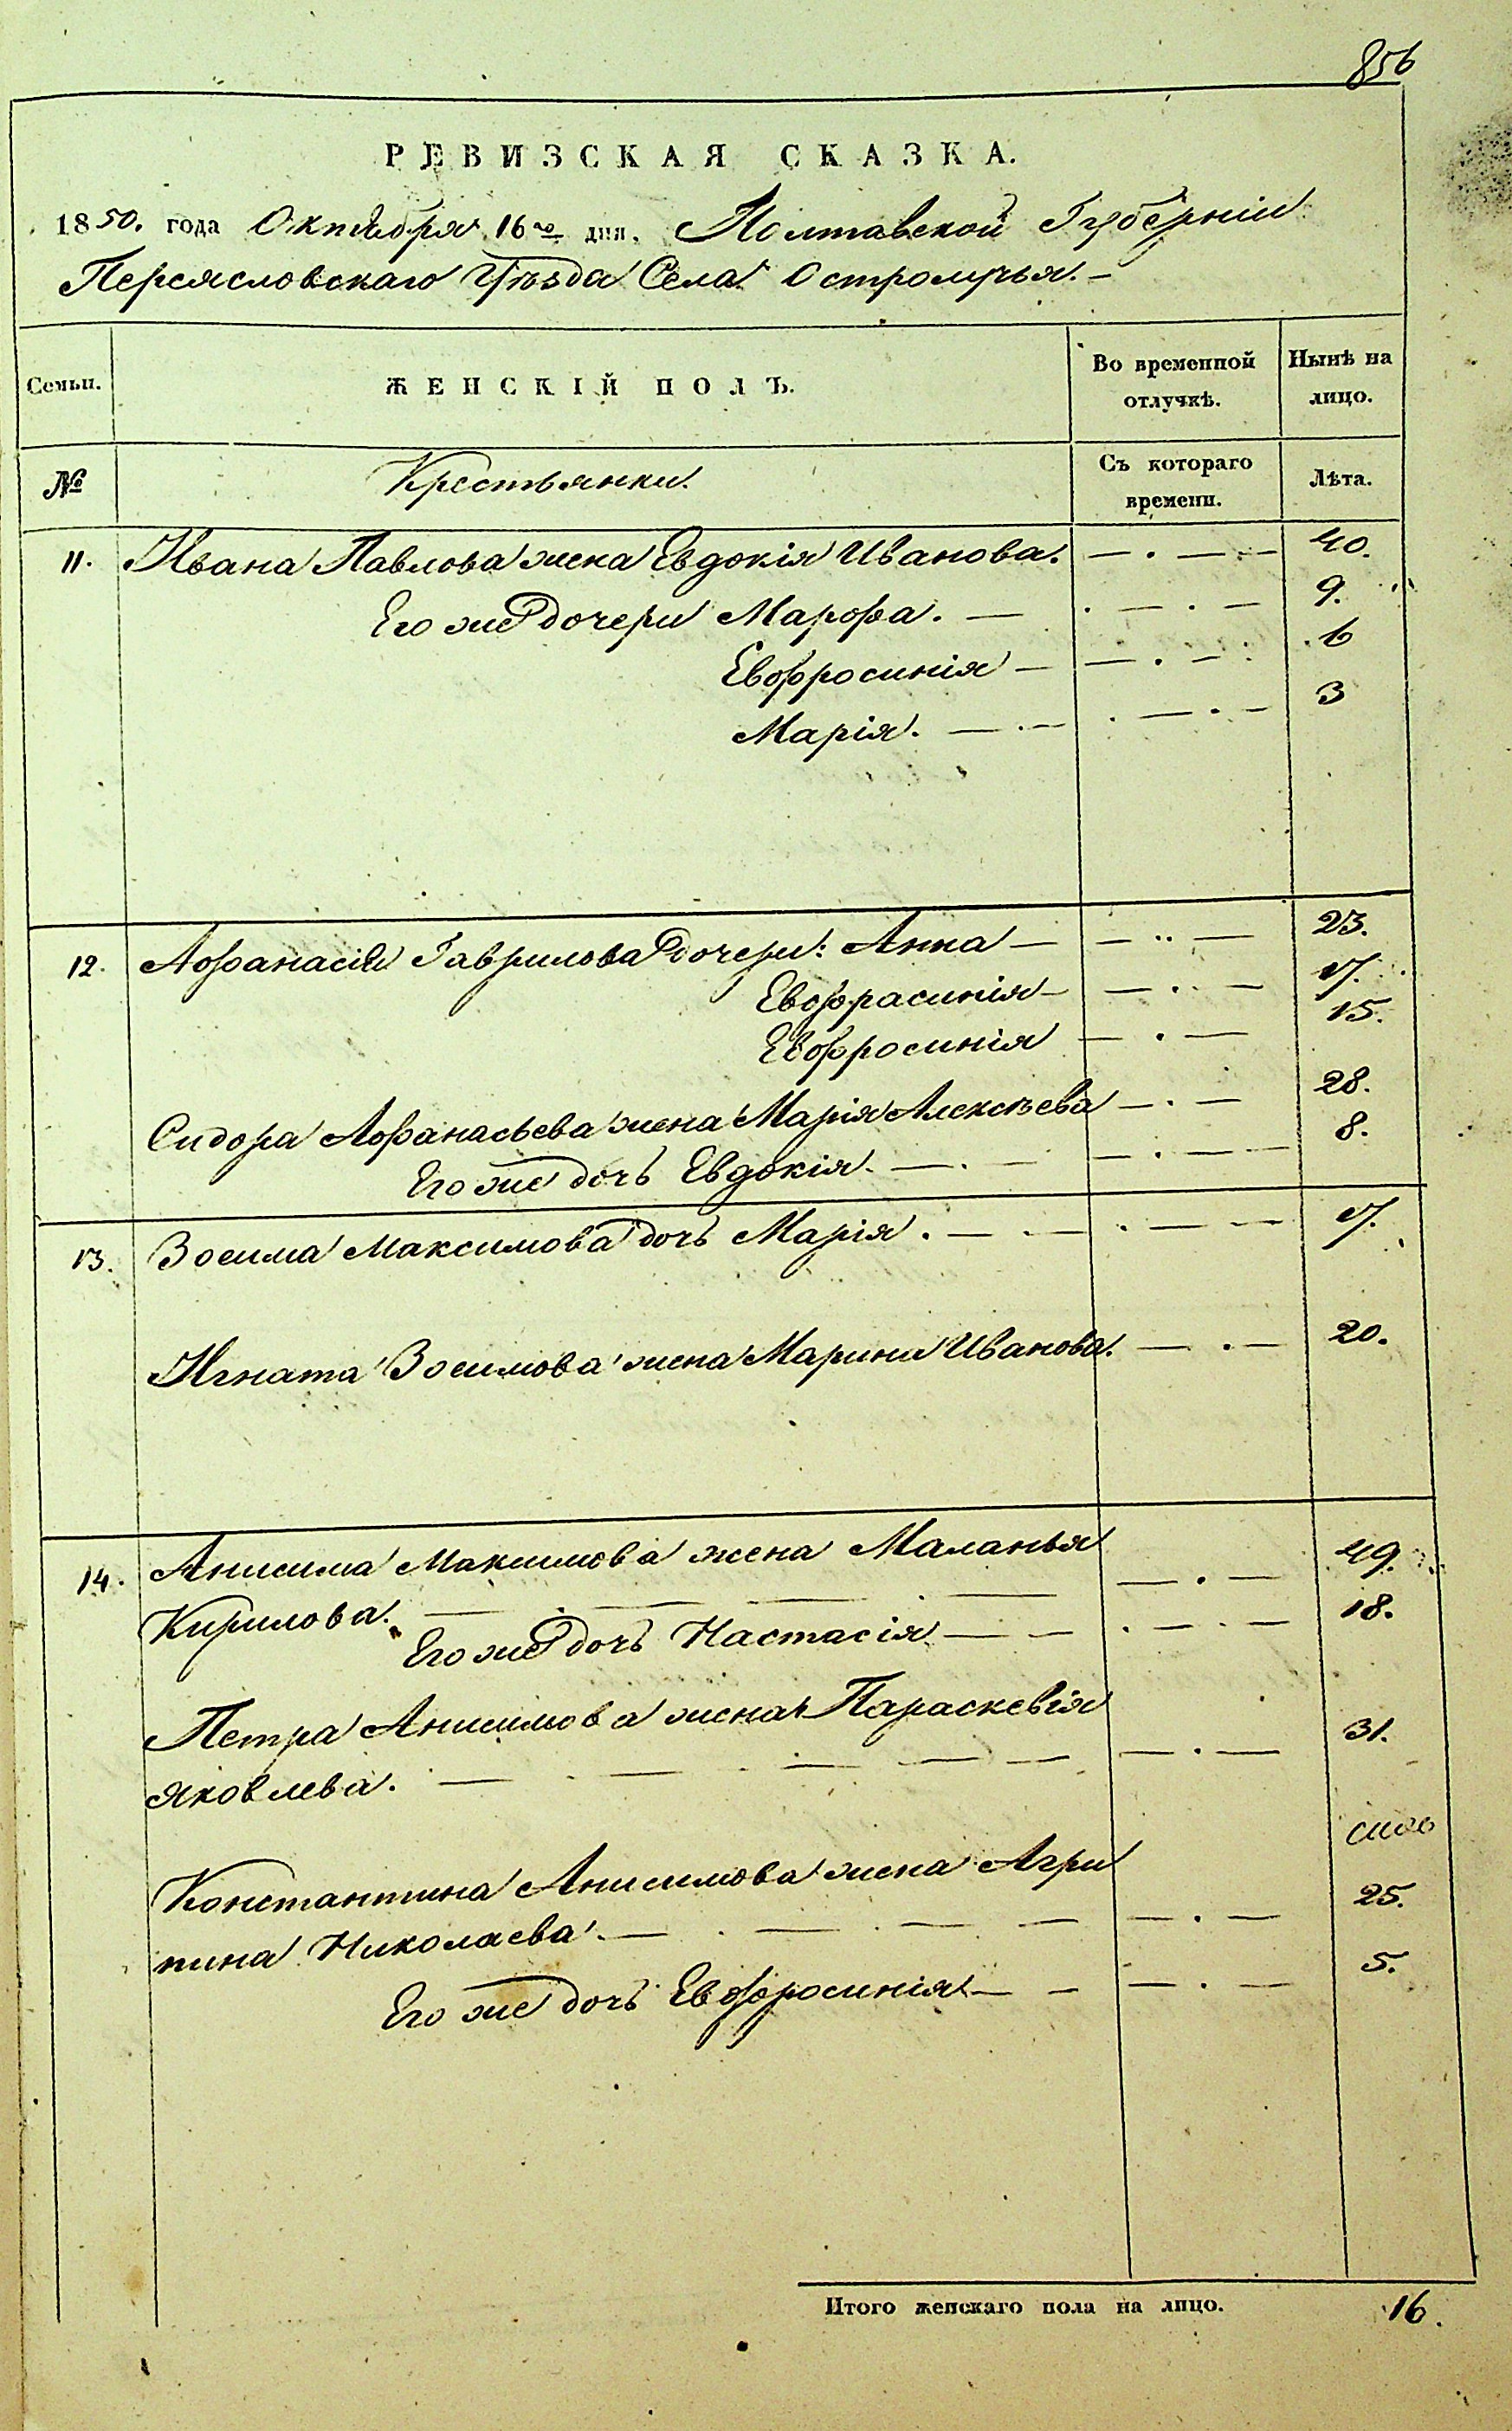 856
РЕВИЗСКАЯ СКАЗКА.
1850. года Октября 16го дня, Полтавской Губерніи
Переясловскаго Уѣзда Села Остролучья.-
Семьи.
ЖЕНСКІЙ ПОЛЪ.
Во временной отлучкѣ.
Нынѣ на лицо.
№
Крестьянки.
Съ котораго времени.
Лѣта.
11. Ивана Павлова жена Евдокія Иванова. 40.
Его же дочери Марфа. 9.
Евфросинія 6
Марія. 3
12. Афанасія Гаврилова дочери: Анна 23.
Евфрасинія 17.
Евфросинія 15.
Сидора Афанасьева жена Марія Алексѣева 28.
Его же дочь Евдокія. 8.
13. Зосима Максимова дочь Марія. 17.
Игната Зосимова жена Марина Иванова. 20.
14. Анисима Максимова жена Маланья
Кирилова. 49.
Его же дочь Настасія 18.
Петра Анисимова жена Параскевія
Яковлева. 31.
Константина Анисимова жена Агри
пина Николаева. 25.
Его же дочь Евфросинія 5.
Итого женскаго пола на лицо. 16.